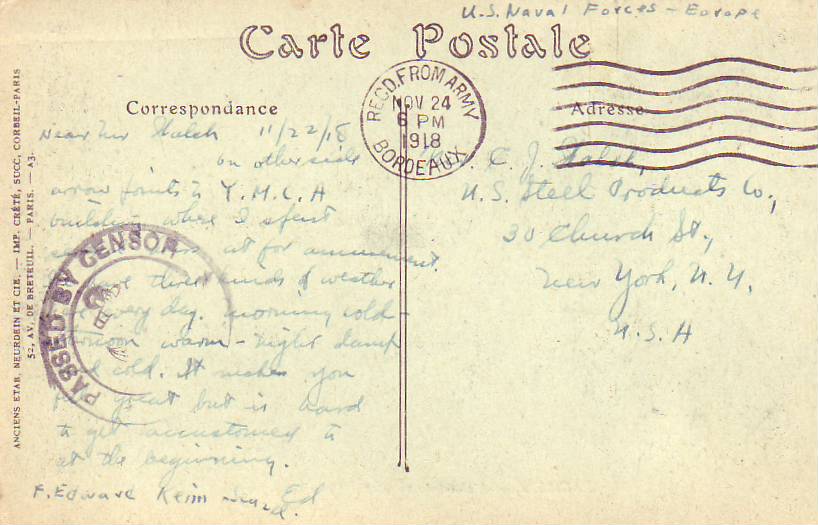 U.S. Naval Forces - Europe
Carte Postale
REC'D. FROM ARMY
NOV 24
6 PM
1918
BORDEAUX
Correspondance
Adresse
ANCIENS ETAB. NEURDEIN ET CIE. — IMP. CRÉTÉ, SUCC, CORBEIL-PARIS
52, AV. DE BRETEUIL. — PARIS. — A3.
Dear Mr Walsh 11/22/18
on other side
arrow points to Y.M.C.A
building where I spent
at for amusement.
three kinds of weather
every day. morning cold -
warm - night damp
cold. It makes you
great but is hard
to get accustomed to
at the beginning.
Ed
F. Edward Keim
PASSED BY CENSOR
C. J. Walsh,
U.S. Steel Products Co.,
30 Church St.,
New York, N.Y.
U.S.A